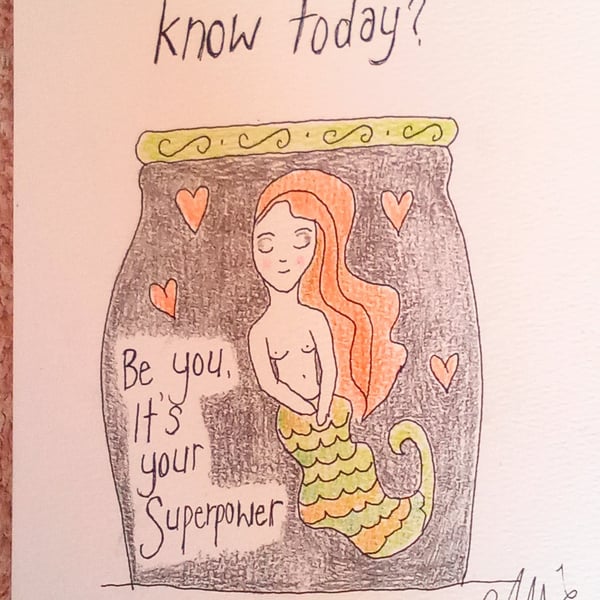 know today?
Be you.
It's
your
Superpower